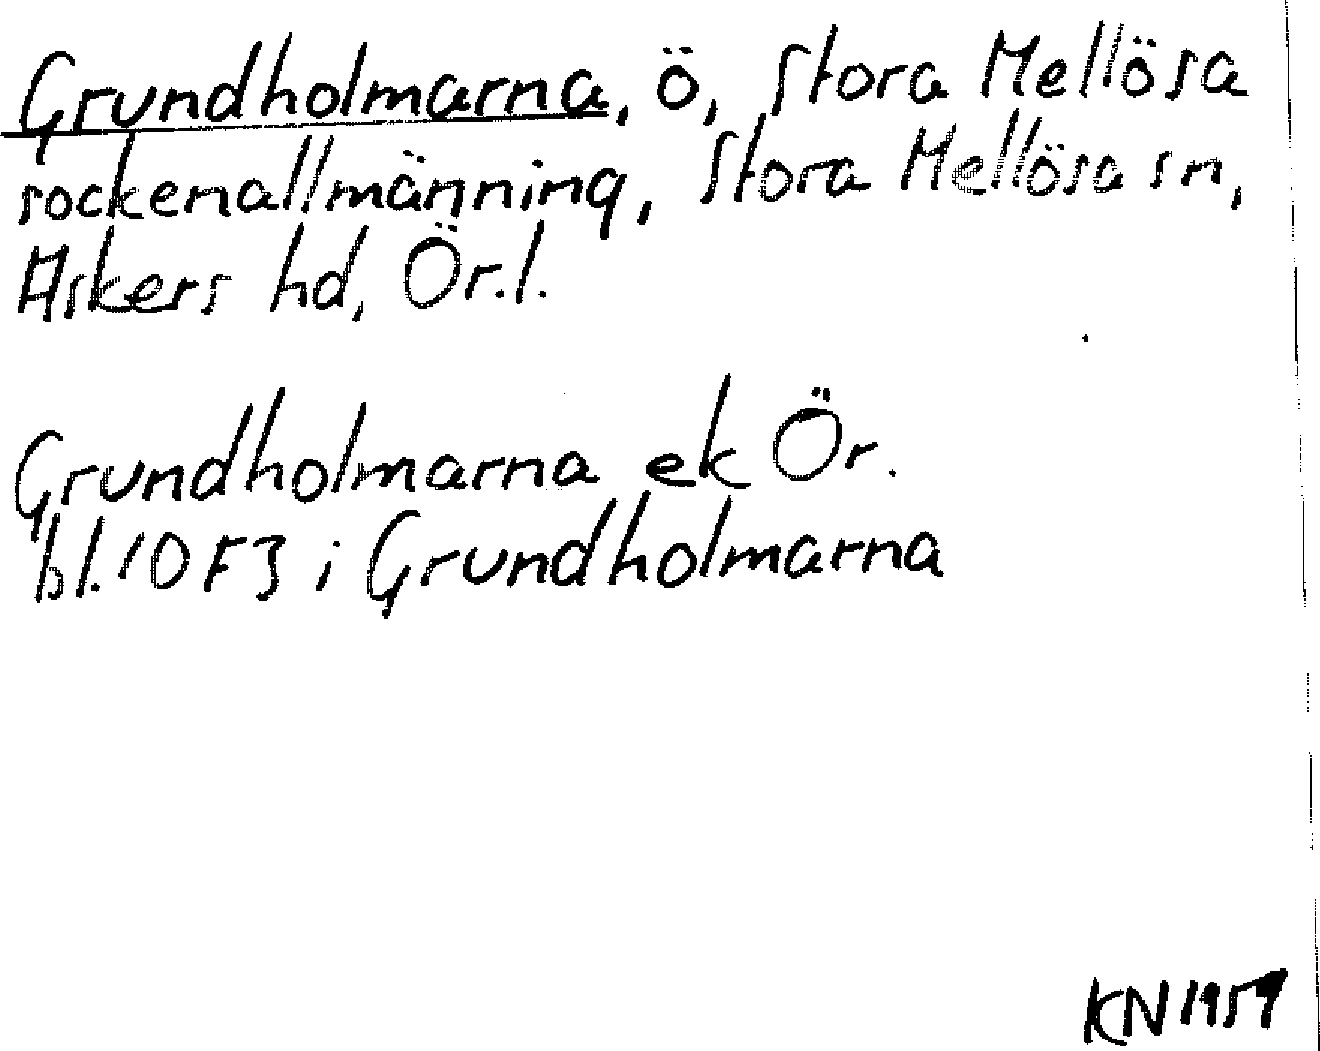 Grundholmarna, ö, Stora Mellösa
sockenallmänning, Stora Mellösa sn,
Askers hd, Ör.l.
Grundholmarna ek Ör.
bl.10F3 i Grundholmarna
KN1959